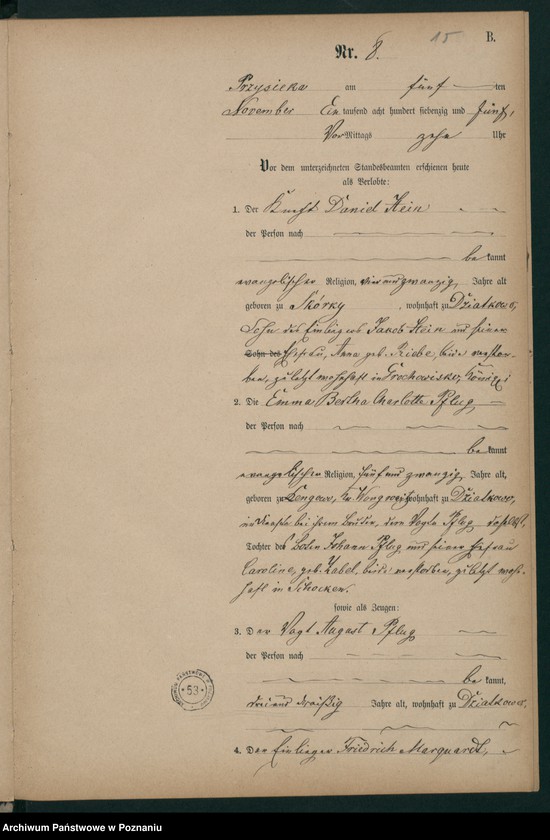 15 B.
Nr. 8.
Przysieka am fünf ten
November Ein tausend acht hundert siebenzig und fünf,
Vor Mittags zehn Uhr
Vor dem unterzeichneten Standesbeamten erschienen heute
als Verlobte:
1. Der Knecht Daniel Hein
der Person nach
be kannt
evangelischer Religion, vierundzwanzig Jahre alt
geboren zu Skórky, wohnhaft zu Dziatkowo,
Sohn des Einliegers Jakob Hein und seiner
Sohn des Ehefrau, Anna geb. Riebe, beide verstor-
ben, zuletzt wohnhaft in Grochowiska,
2. Die Emma Bertha Charlotte Pflug
der Person nach
be kannt
evangelischer Religion, fünfundzwanzig Jahre alt,
geboren zu wohnhaft zu Dziatkowo,
bei ihrem Bruder, dem Vogte Pflug daselbst,
Tochter des Johann Pflug und seiner Ehefrau
Caroline, geb. Zabel, beide verstorben, zuletzt wohn-
haft in Schocken.
sowie als Zeugen:
3. Der Vogt August Pflug
der Person nach
be kannt,
dreiunddreißig Jahre alt, wohnhaft zu Dziatkowo,
4. Der Einlieger Friedrich Marquardt,
53
Archiwum Państwowe w Poznaniu